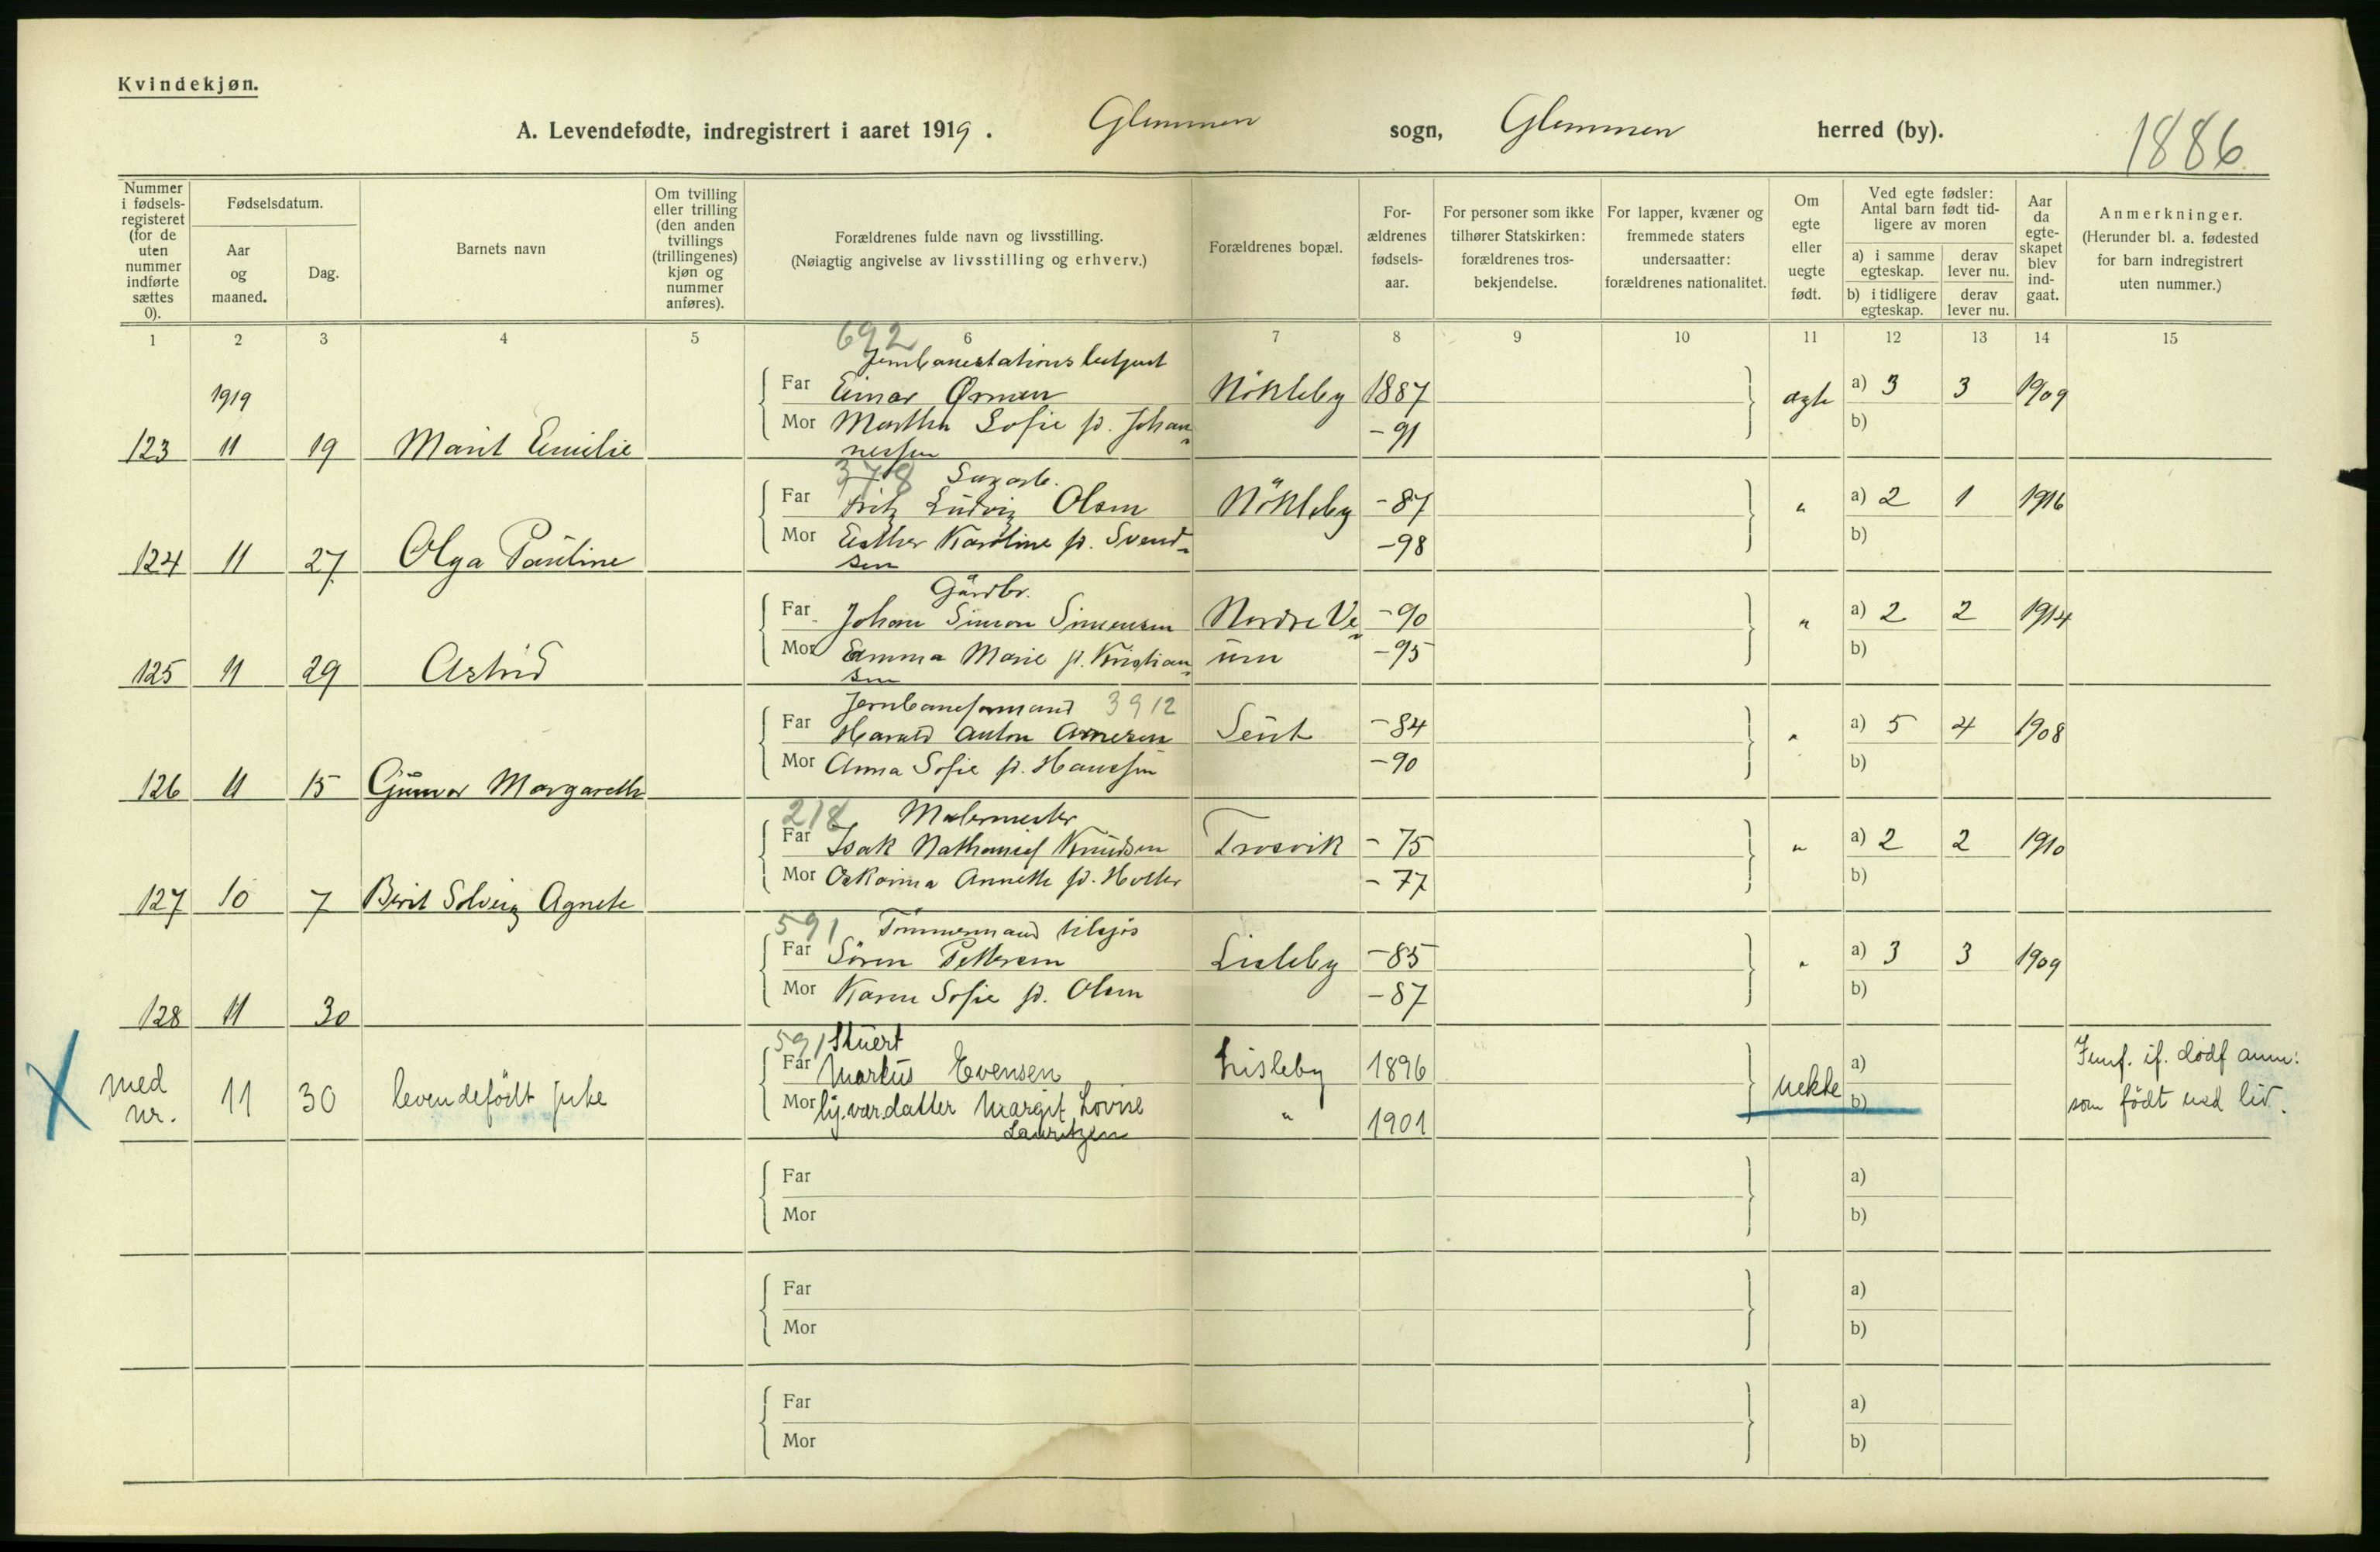 Kvindekjøn.
A. Levendefødte, indregistrert i aaret 1919. Glemmen sogn, Glemmen herred (by).
1886
Nummer i fødsels-registeret (for de uten nummer indførte sættes 0).
Fødselsdatum.
Aar og maaned.
Dag.
Barnets navn
Om tvilling eller trilling (den anden tvillings (trillingenes) kjøn og nummer anføres).
Forældrenes fulde navn og livsstilling.
(Nøiagtig angivelse av livsstilling og erhverv.)
Forældrenes bopæl.
For-ældrenes fødsels-aar.
For personer som ikke tilhører Statskirken: forældrenes tros-bekjendelse.
For lapper, kvæner og fremmede staters undersaatter: forældrenes nationalitet.
Om egte eller uegte født.
Ved egte fødsler: Antal barn født tid-ligere av moren
a) i samme egteskap.
derav lever nu.
b) i tidligere egteskap.
derav lever nu.
Aar da egte-skapet blev ind-gaat.
Anmerkninger.
(Herunder bl. a. fødested for barn indregistrert uten nummer.)
1 2 3 4 5 6 7 8 9 10 11 12 13 14 15
692
Jernbanestationsbetjent
1919
Far Einar Ørmen Nökleby 1887 ægte a) 3 3 1909
Mor Martha Sofie f. Johan- -91 b)
123 11 19 Marit Emilie nessen
378 Sagarb.
Far Fritz Ludvig Olsen Nökleby -87 " a) 2 1 1916
Mor Esther Karoline f. Svend- -98 b)
124 11 27 Olga Pauline sen
Gårdbr.
Far Johan Simon Simensen Nordre Ve- -90 " a) 2 2 1914
Mor Emma Marie f. Kristian- um -95 b)
125 11 29 Astrid sen
Jernbaneformand 3912
Far Harald Anton Arnesen Seut -84 " a) 5 4 1908
Mor Anna Sofie f. Hansen -90 b)
126 11 15 Gunvor Margareth
218 Malermester
Far Isak Nathaniel Knudsen Trosvik -75 " a) 2 2 1910
Mor Oskarina Annette f. Holter -77 b)
127 10 7 Berit Solveig Agnete
591 Tömmermand tilsjös
Far Sören Pettersen Lisleby -85 " a) 3 3 1909
Mor Karen Sofie f. Olsen -87 b)
128 11 30
591 Stuert
Far Markus Evensen Lisleby 1896 a)
med nr. 11 30 levendefödt pike uekte
Mor hj.vær.datter Margit Lovise " 1901 b)
Lauritzen
Jemf. if. dödf anm:
som födt med liv.
Far a)
Mor b)
Far a)
Mor b)
Far a)
Mor b)